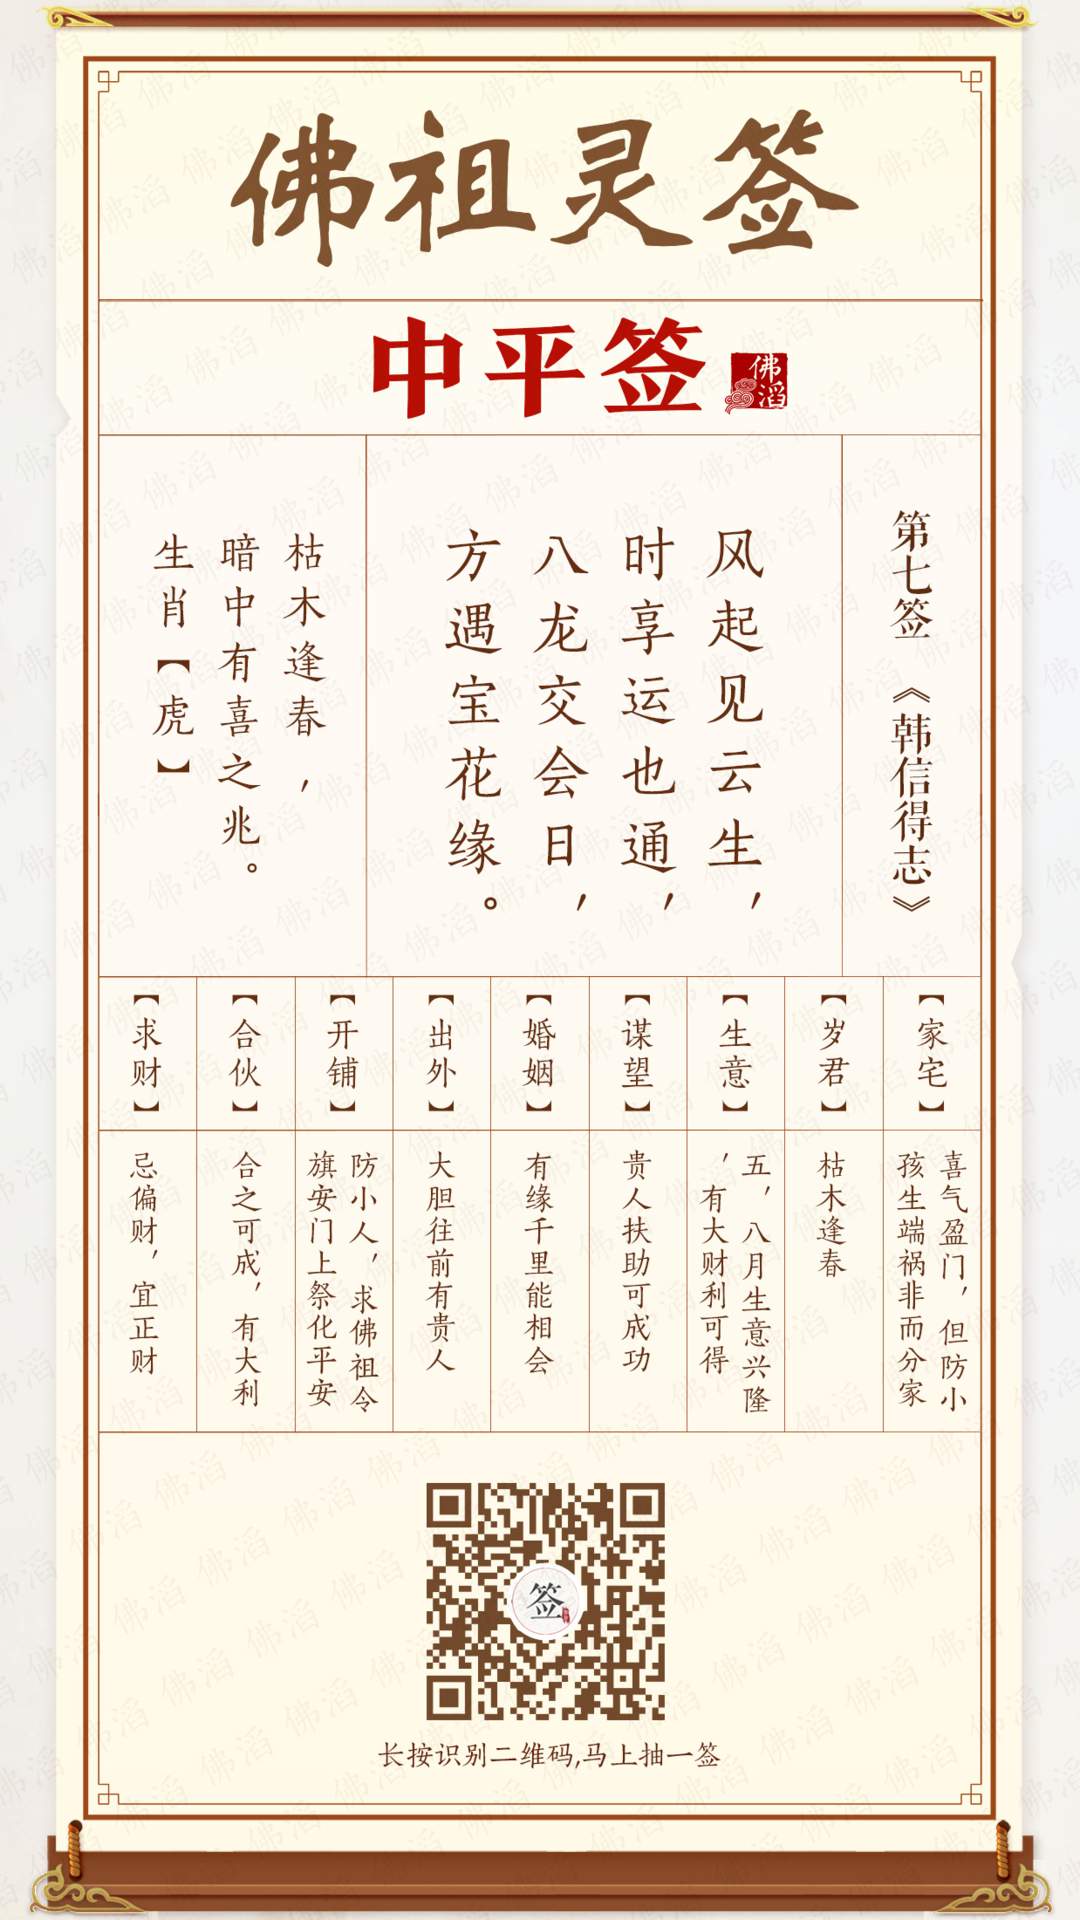 佛祖灵签
中平签
佛滔
第七签 《韩信得志》
风起见云生，
时享运也通，
八龙交会日，
方遇宝花缘。
枯木逢春，
暗中有喜之兆。
生肖【虎】
【家宅】
喜气盈门，但防小
孩生端祸非而分家
【岁君】
枯木逢春
【生意】
五，八月生意兴隆
，有大财利可得
【谋望】
贵人扶助可成功
【婚姻】
有缘千里能相会
【出外】
大胆往前有贵人
【开铺】
防小人，求佛祖令
旗安门上祭化平安
【合伙】
合之可成，有大利
【求财】
忌偏财，宜正财
签
长按识别二维码,马上抽一签